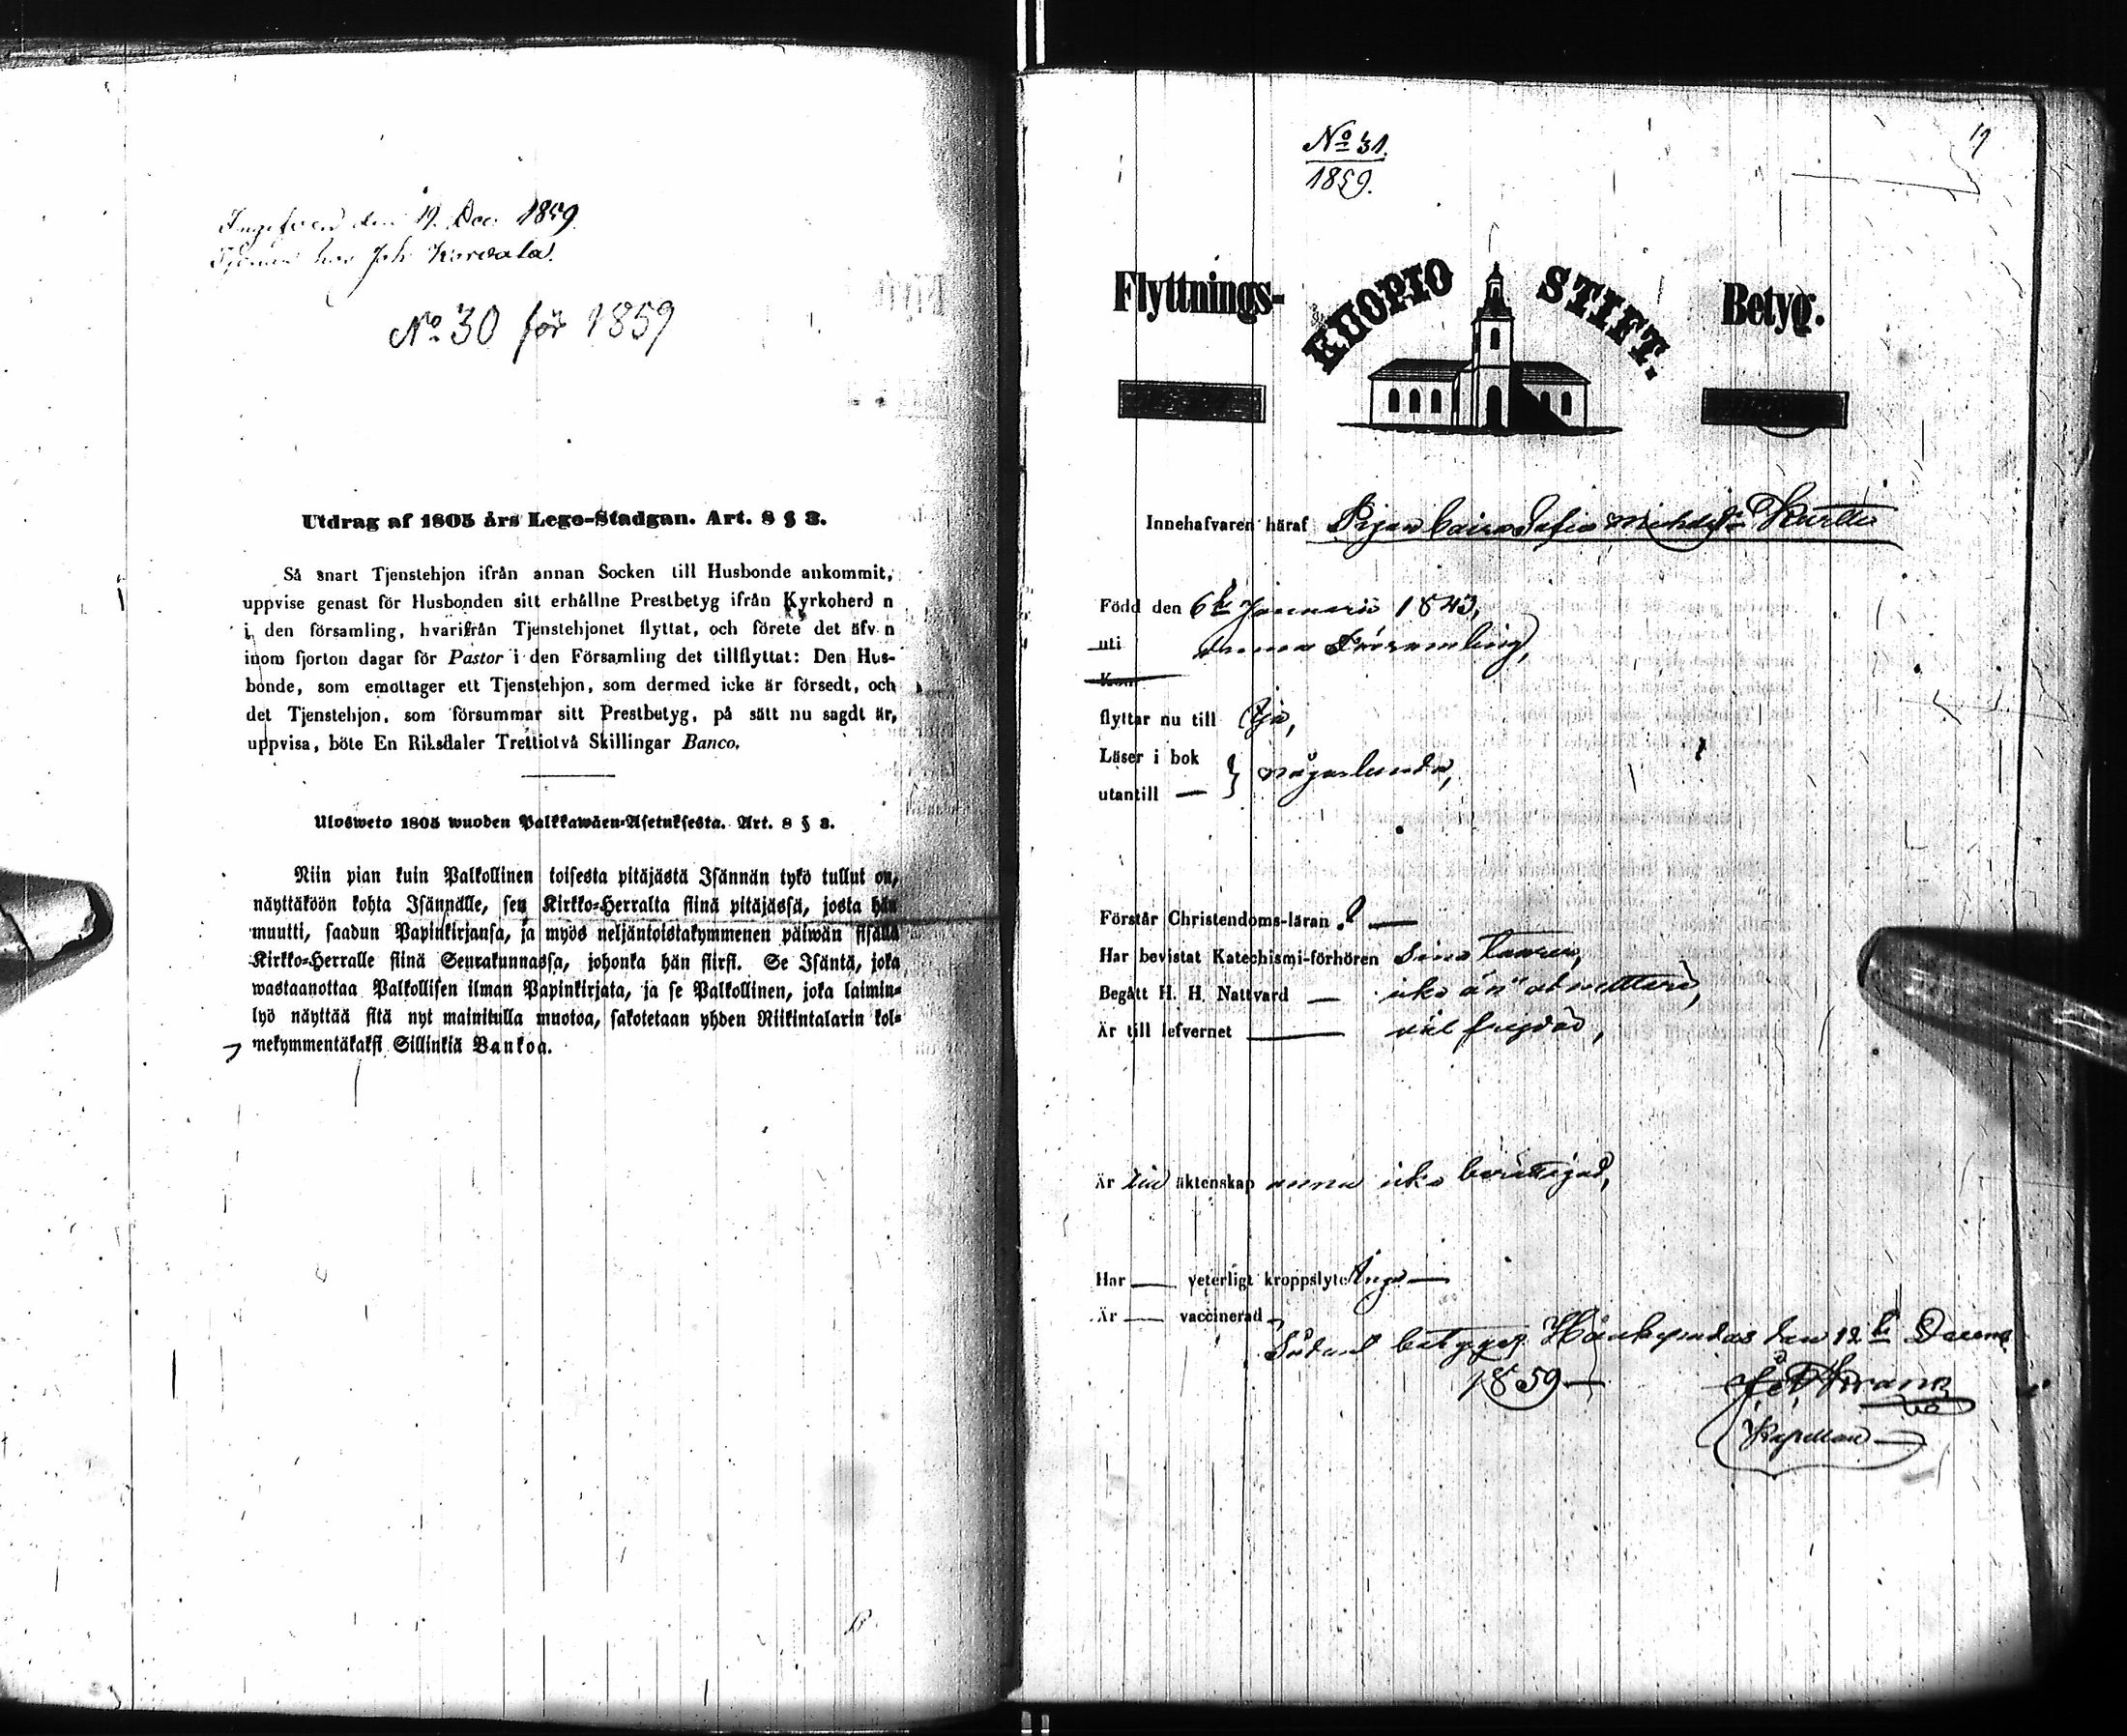 Ingifven den 19. Dec. 1859.
Tjenar hos Joh Korvala.
No. 30 för 1859
Utdrag af 1805 års Lego-Stadgan. Art. 8 § 3.
Så snart Tjenstehjon ifrån annan Socken till Husbonde ankommit,
uppvise genast för Husbonden sitt erhållne Prestbetyg ifrån Kyrkoherd n
i den församling, hvarifrån Tjenstehjonet flyttat, och förete det äfv n
inom fjorton dagar för Pastor i den Församling det tillflyttat: Den Hus-
bonde, som emottager ett Tjenstehjon, som dermed icke är försedt, och
det Tjenstehjon, som försummar sitt Prestbetyg, på sätt nu sagdt är,
uppvisa, böte En Riksdaler Trettiotvå Skillingar Banco.
Ulosweto 1805 wuoden Palkkawäen-Asetuksesta. Art. 8 § 3.
Niin pian kuin Palkollinen toisesta pitäjästä Isännän tykö tullut on,
näyttäköön kohta Isännälle, sen Kirkko-Herralta siinä pitäjässä, josta hän
muutti, saadun Papinkirjansa, ja myös neljäntoistakymmenen päiwän sisällä
Kirkko-Herralle siinä Seurakunnassa, johonka hän siirsi. Se Isäntä, joka
wastaanottaa Palkollisen ilman Papinkirjata, ja se Palkollinen, joka laimin-
lyö näyttää sitä nyt mainitulla muotoa, sakotetaan yhden Riikintalarin kol-
mekymmentäkaksi Sillinkiä Bankoa.
No 31.
1859.
19
Flyttnings- KUOPIO STIFT. Betyg.
Innehafvaren häraf Pigan Caisa Sofia Michelsdr
Född den 6te Januarii 1843,
uti denna Församling,
Kon
flyttar nu till
Läser i bok
utantill — } någorlunda,
Förstår Christendoms-läran —
Har bevistat Katechismi-förhören sina
Begått H. H. Nattvard — icke än admitterad,
Är till lefvernet — väl frejdad,
Är till äktenskap ännu icke berättigad,
Har — veterligt kroppslyte Inga —
Är — vaccinerad —
Sådant betygget den 12te Decemb
1859 —
Kapellan